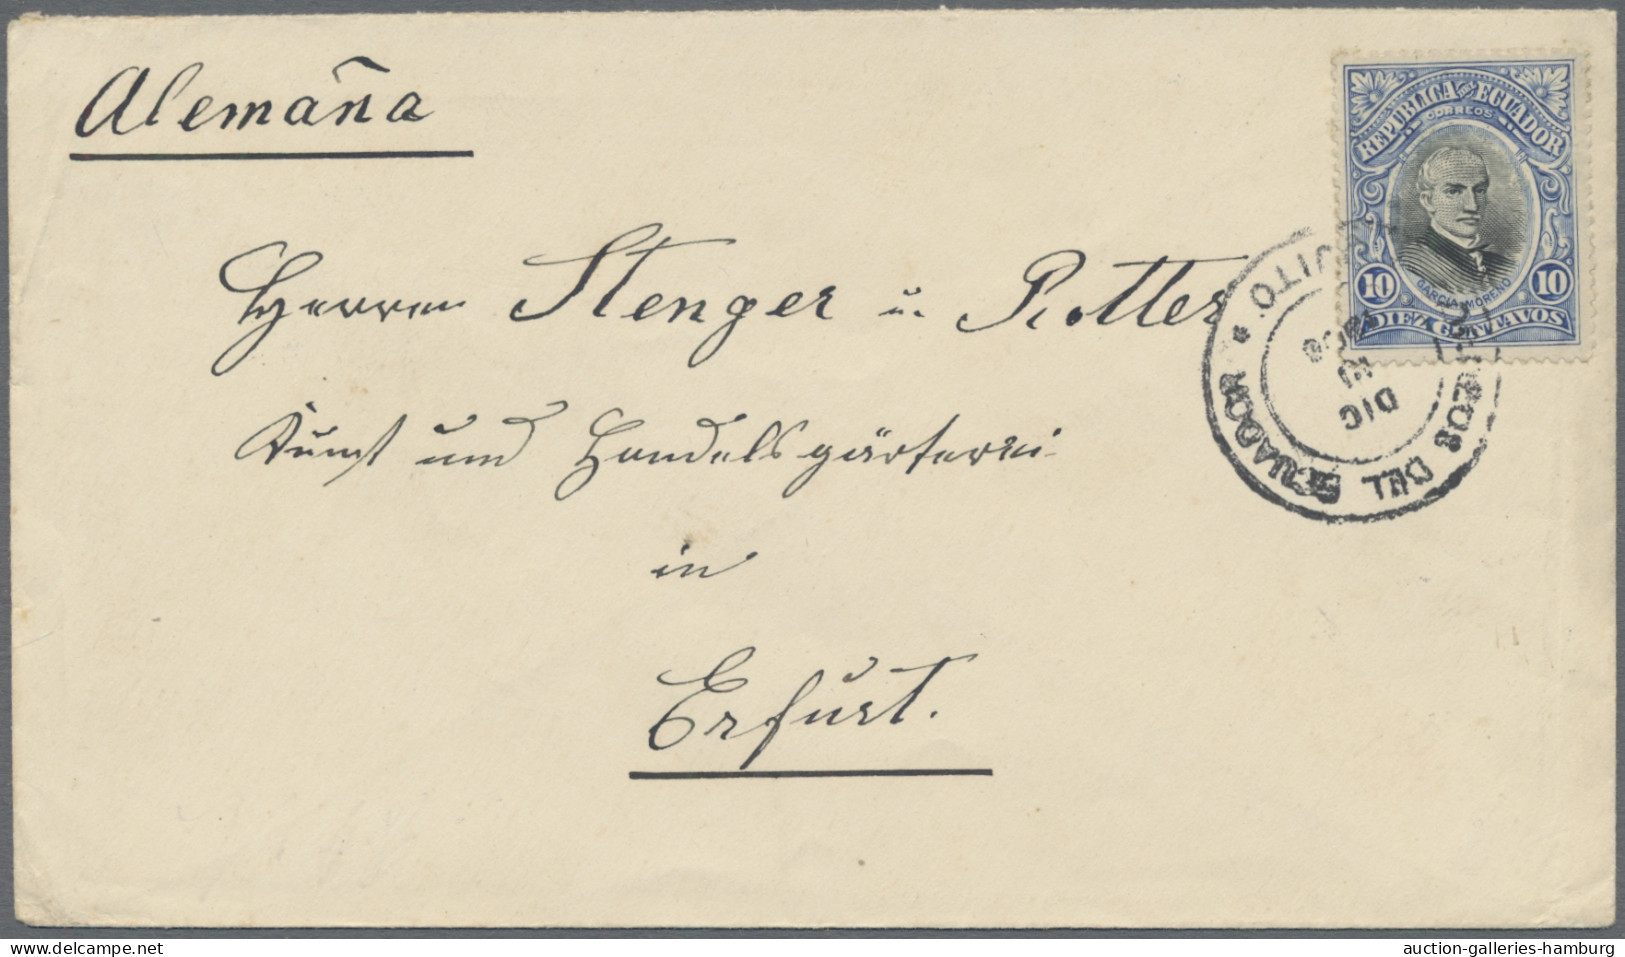 Alemaña
REPUBLICA DEL ECUADOR
CORREOS
GARCIA MORENO
10 10
DIEZ CENTAVOS
QUITO
DIC
10
DEL ECUADOR
Herren Stenger u. Rotter
Kunst und Handelsgärtnerei
in
Erfurt.
www.delcampe.net
auction-galleries-hamburg